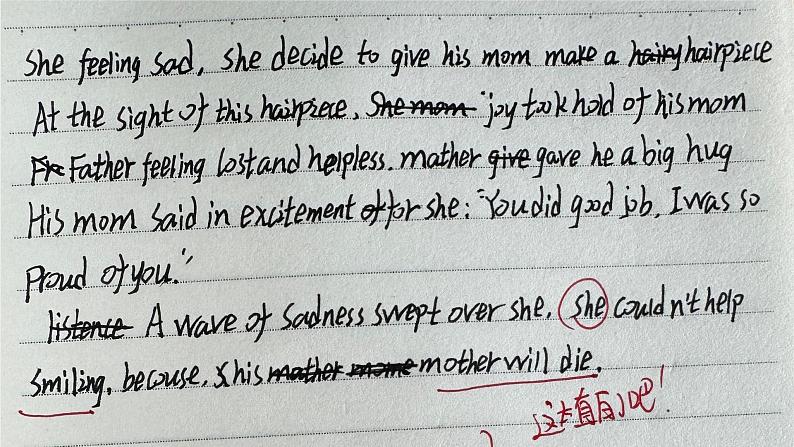 She feeling sad, she decide to give his mom make a hairy hairpiece
At the sight of this hairpiece, She mom "joy took hold of his mom
Fx Father feeling lost and helpless. mather give gave he a big hug
His mom said in excitement of for she: "You did good job, I was so
proud of you."
listence A wave of sadness swept over she, she couldn't help
smiling, becouse, his mather mome mother will die.
这太直白了吧!